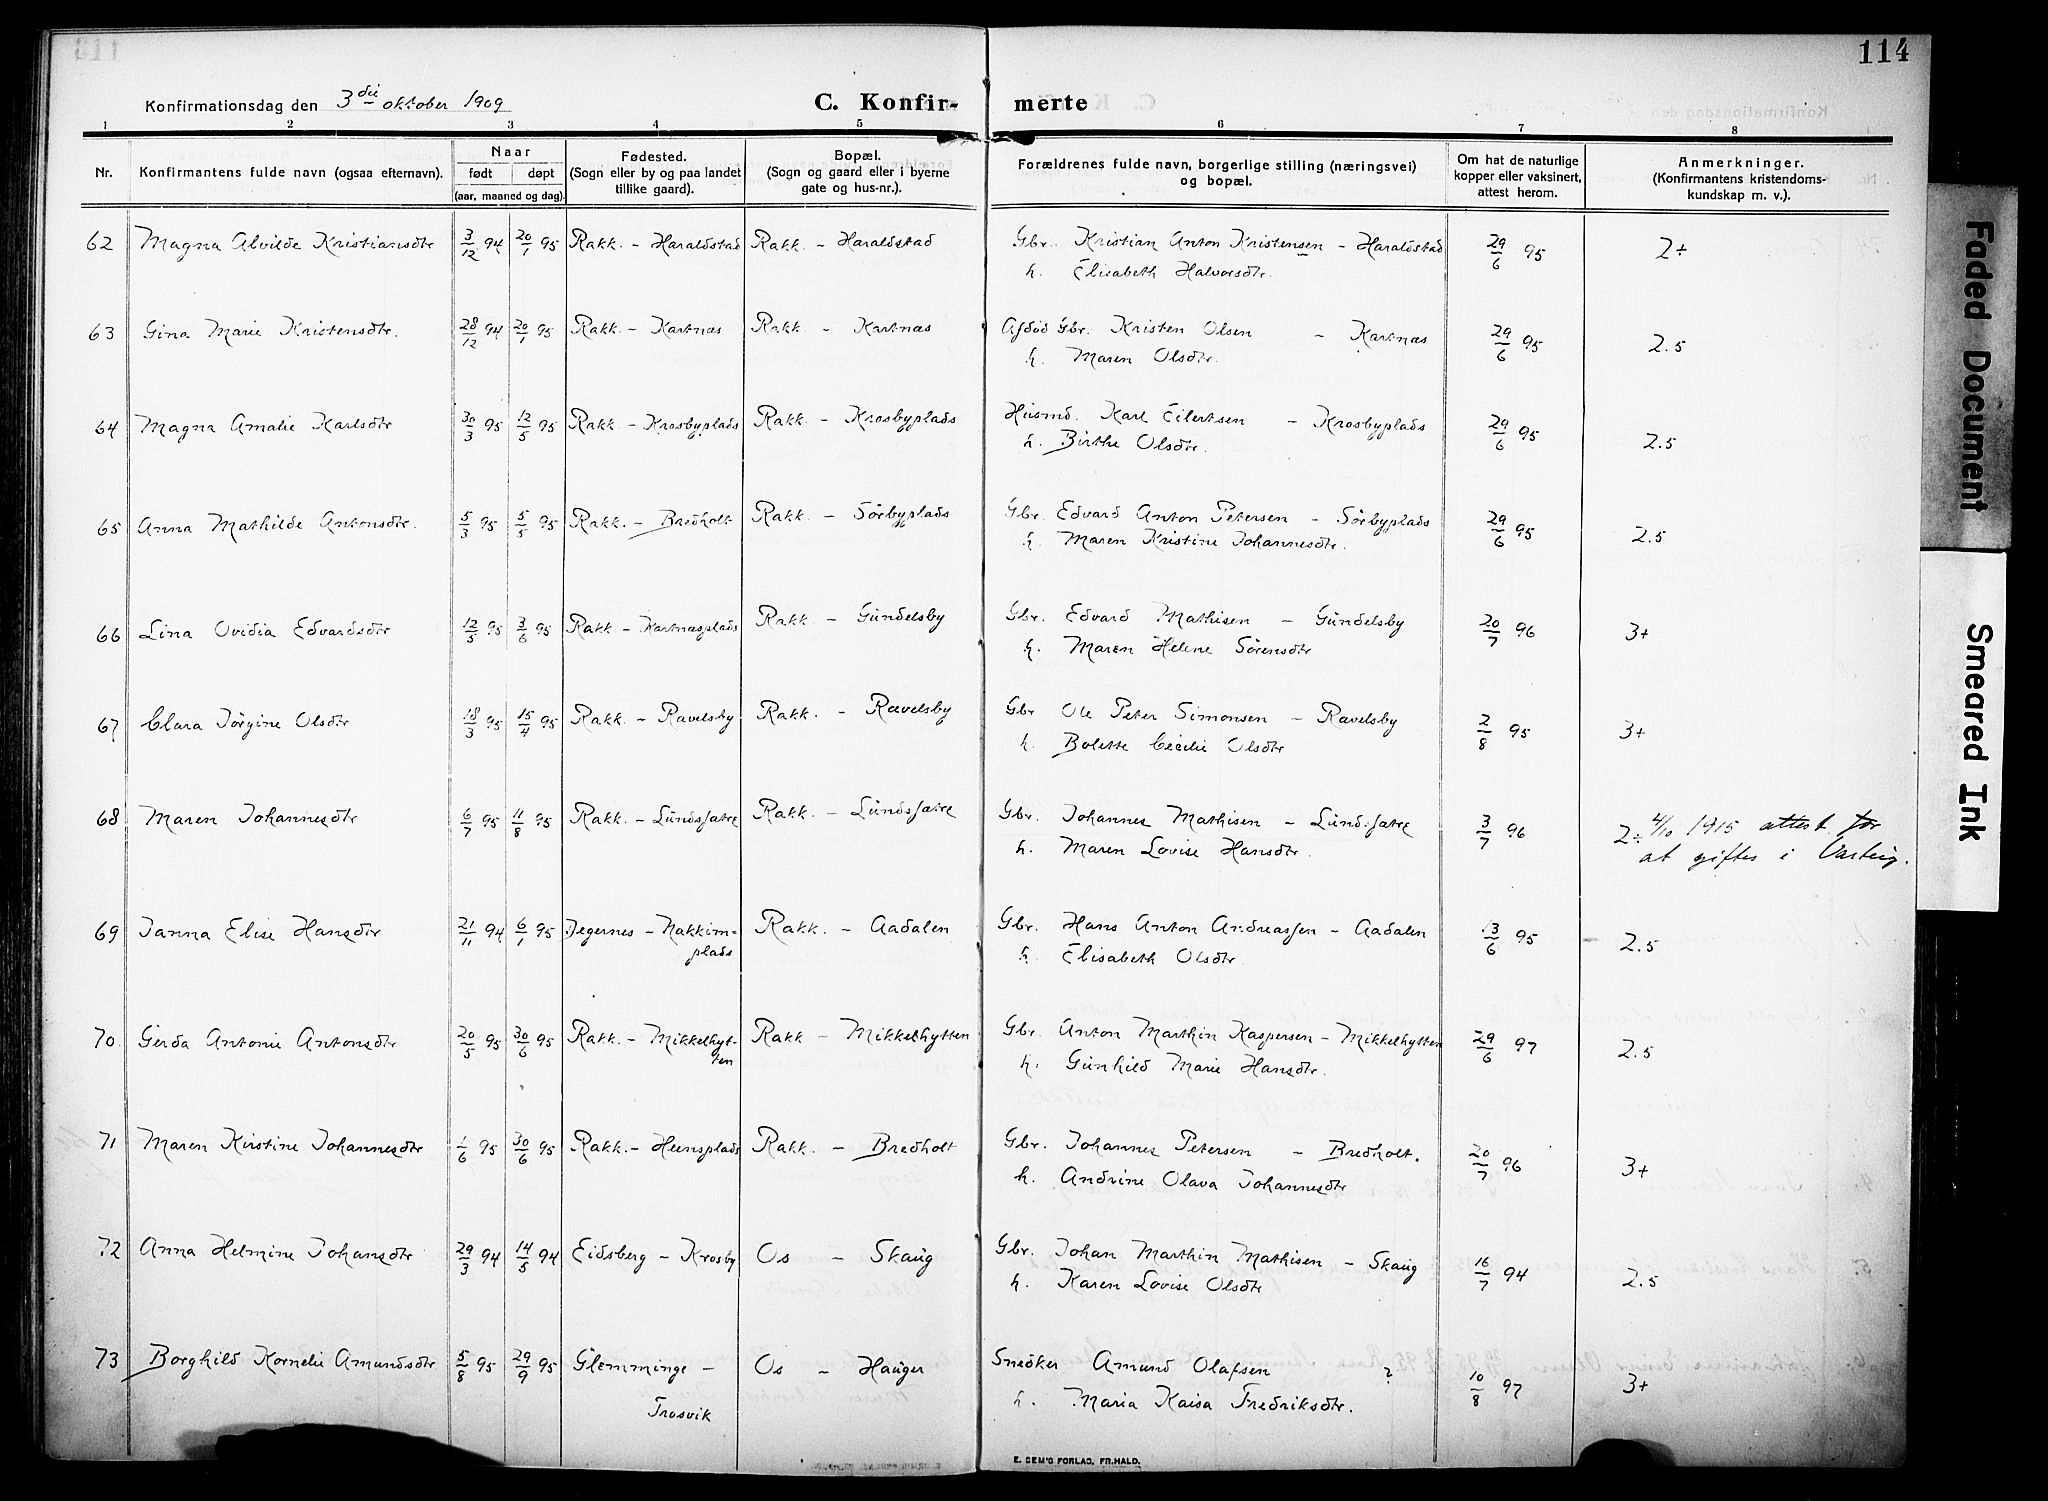 114
Konfirmationsdag den 3die oktober 1909
C. Konfir- merte
1 2 3 4 5 6 7 8
Nr. Konfirmantens fulde navn (ogsaa efternavn). Naar født døpt (aar, maaned og dag). Fødested. (Sogn eller by og paa landet tillike gaard). Bopæl. (Sogn og gaard eller i byerne gate og hus-nr.). Forældrenes fulde navn, borgerlige stilling (næringsvei) og bopæl. Om hat de naturlige kopper eller vaksinert, attest herom. Anmerkninger. (Konfirmantens kristendoms- kundskap m. v.).
62 Magna Alvilde Kristiansdtr 3/12 94 20/1 95 Rakk. - Haraldstad Rakk. - Haraldstad Gbr. Kristian Anton Kristensen - Haraldstad 29/6 95 2÷
h. Elisabeth Halvorsdtr.
63 Gina Marie Kristensdtr. 28/12 94 20/1 95 Rakk. - Kartnæs Rakk. - Kartnæs Afdød Gbr. Kristen Olsen - Kartnæs 29/6 95 2.5
h. Maren Olsdtr.
64 Magna Amalie Karlsdtr 30/3 95 12/5 95 Rakk. - Krosbyplads Rakk. - Krosbyplads Husmd. Karl Eilertsen - Krosbyplads 29/6 95 2.5
h. Birthe Olsdtr.
65 Anna Mathilde Antonsdtr. 5/3 95 5/5 95 Rakk. - Bredholt Rakk. - Sørbyplads Gbr. Edvard Anton Petersen - Sørbyplads 29/6 95 2.5
h. Maren Kristine Johannesdtr.
66 Lina Ovidia Edvardsdtr 12/5 95 3/6 95 Rakk - Kartnæsplads Rakk. - Gundelsby Gbr. Edvard Mathisen - Gundelsby 20/7 96 3+
h. Maren Helene Sørensdtr
67 Clara Jørgine Olsdtr 18/3 95 15/4 95 Rakk. - Ravelsby Rakk. - Rævelsby Gbr Ole Peter Simonsen - Ravelsby 2/8 95 3+
h. Bolette Cecilie Olsdtr
68 Maren Johannesdtr 6/7 95 11/8 95 Rakk. - Lundssætre Rakk. - Lundssætre Gbr. Johannes Mathisen - Lundssætre 3/7 96 2÷ 4/10 1915 attest for
h. Maren Lovise Hansdtr. at giftes i Varteig.
69 Janna Elise Hansdtr 21/11 94 6/1 95 Degernes - Nakkim- Rakk. - Aadalen Gbr. Hans Anton Andreassen - Aadalen 13/6 95 2.5
plads h. Elisabeth Olsdtr.
70. Gerda Antonie Antonsdtr 20/5 95 30/6 95 Rakk. - Mikkelhyt- Rakk - Mikkelhytten Gbr. Anton Marthin Kaspersen - Mikkelhytten 29/6 97 2.5
ten h. Gunhild Marie Hansdtr.
71 Maren Kirstine Johannesdtr 1/6 95 30/6 95 Rakk. - Heensplads Rakk. - Bredholt Gbr. Johannes Petersen - Bredholt. 20/7 96 3+
h. Andrine Olava Johannesdtr
72 Anna Helmine Johansdtr 29/3 94 14/5 94 Eidsberg - Krosby Os - Skaug Gbr. Johan Marthin Mathisen - Skaug 16/7 94 2.5
h. Karen Lovise Olsdtr
73 Borghild Kornelie Amundsdtr 5/8 95 29/9 95 Glemminge - Os - Hauger Snedker Amund Olafsen ? 10/8 97 3+
Trosvik h. Maria Kaisa Fredriksdtr.
E. SEM'S FORLAG, FR.HALD.
Faded Document
Smeared Ink